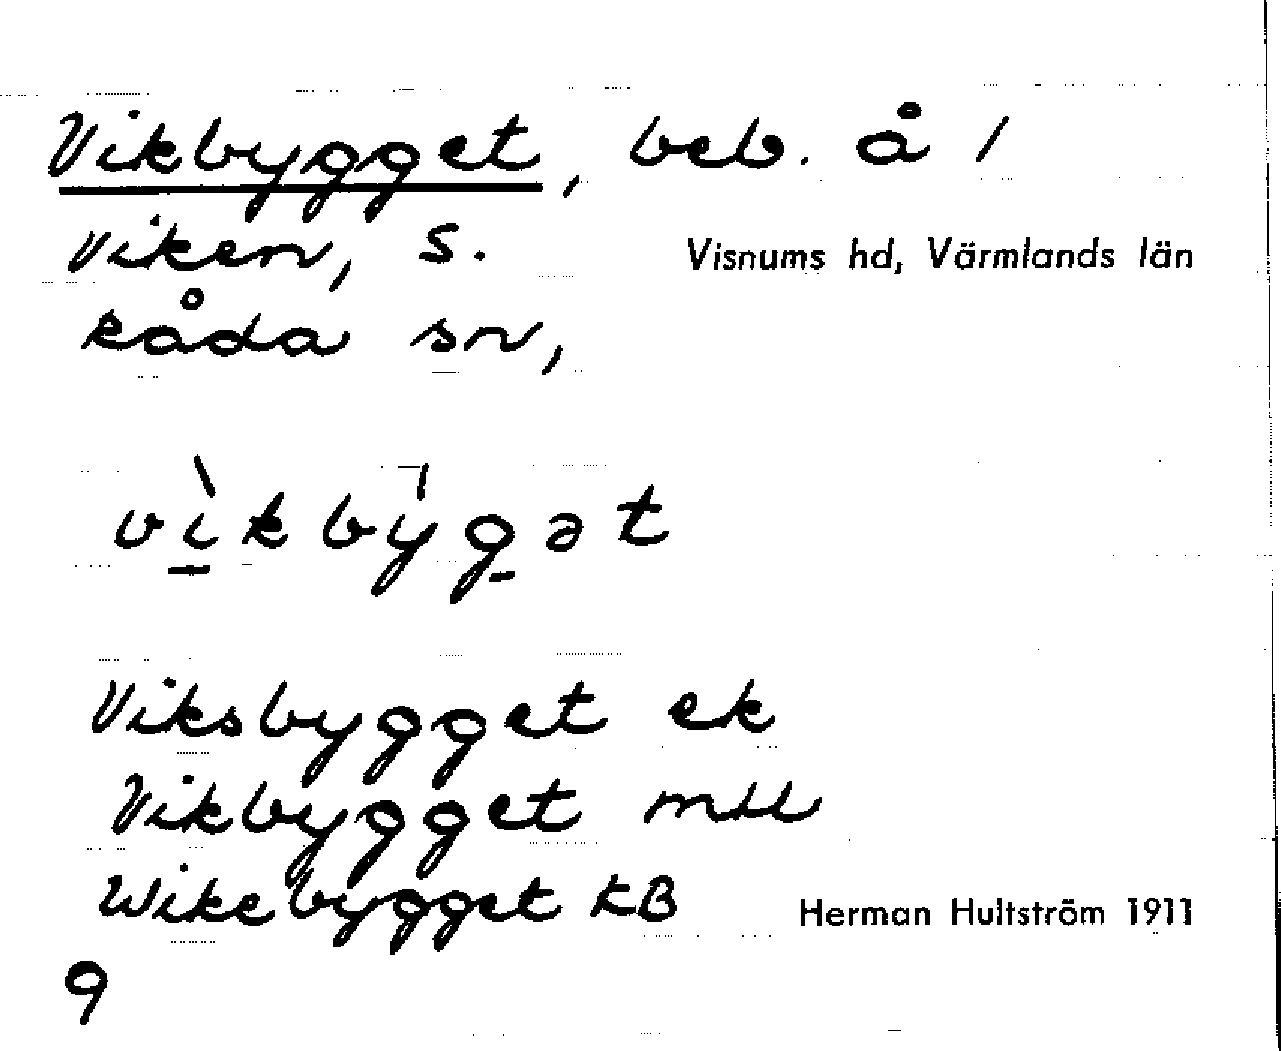 Vikbygget, beb. å 1
Viken, S. Visnums hd, Värmlands län
Råda sn,
vìkbýgət
Viksbygget ek
Vikbygget mtl
Wikebygget KB Herman Hultström 1911
9